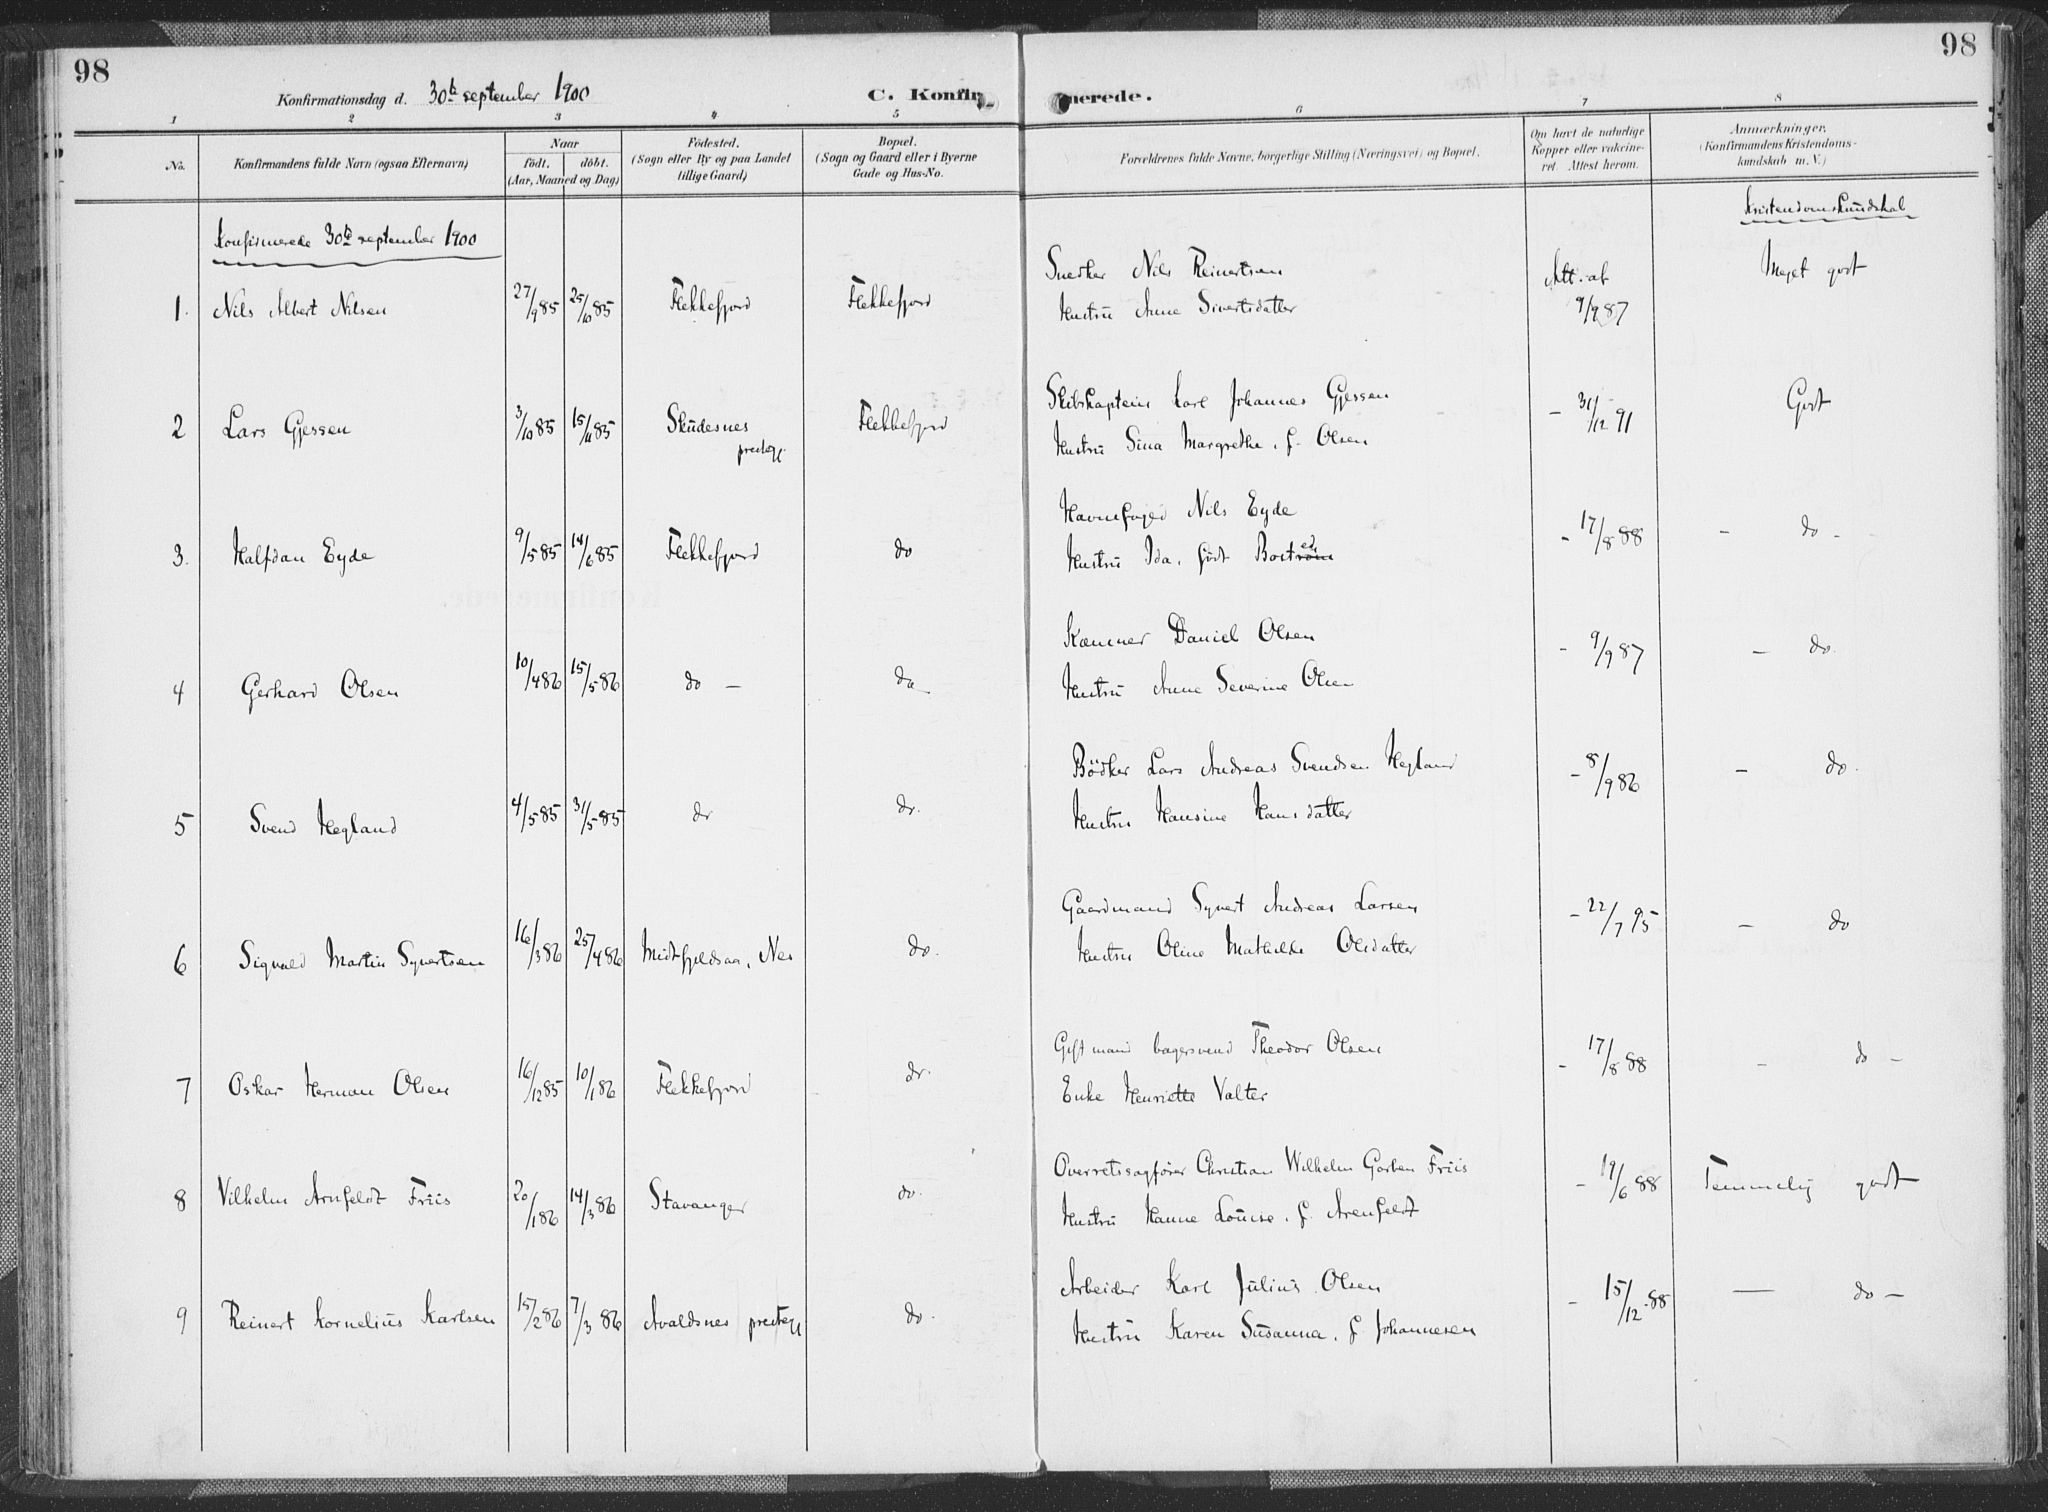 98
98
Konfirmationsdag d. 30te september 1900
C. Konfir
merede.
1 2 3 4 5 6 7 8
No.
Konfirmandens fulde Navn (ogsaa Efternavn)
Naar
födt. döbt.
(Aar, Maaned og Dag)
Födested.
(Sogn eller By og paa Landet
tillige Gaard)
Bopæl.
(Sogn og Gaard eller i Byerne
Gade og Hus-No.
Forældrenes fulde Navne, borgerlige Stilling (Næringsvei) og Bopæl.
Om havt de naturlige
Kopper eller vakcine-
ret. Attest herom.
Anmærkninger.
(Konfirmandens Kristendoms-
kundskab m. V.)
Kristendomskundskab
Konfirmerede 30te september 1900
Snedker Nils Reinertsen
1. Nils Albert Nilsen 27/9 85 25/10 85 Flekkefjord Flekkefjord Hustru Anne Sivertsdatter Att. af 9/9 87 Meget godt
Skibskaptein Karl Johannes Gjessen
2 Lars Gjessen 3/10 85 15/11 85 Skudesnes prestegj. Flekkefjord Hustru Sina Margrethe, f. Olsen - 31/12 91 Godt
Havnefoged Nils Eyde
3. Halfdan Eyde 9/5 85 14/6 85 Flekkefjord do Hustru Ida, født Bostrøm ed - 17/8 88 - do -
Kæmner Daniel Olsen
4 Gerhard Olsen 10/4 86 15/5 86 do - do - Hustru Anne Severine Olsen - 9/9 87 - do.
Bödker Lars Andreas Svendsen Hegland
5 Svend Hegland 4/5 85 31/5 85 do do. Hustru Hansine Hansdatter - 8/9 86 - do.
Gaardmand Syvert Andreas Larsen
6 Sigvald Martin Syvertsen 16/3 86 25/4 86 Midtfjeldsaa, Nes do. Hustru Oline Mathilde Olsdatter - 22/7 95 - do
Gift mand bagersvend Theodor Olsen
7 Oskar Herman Olsen 16/12 85 10/1 86 Flekkefjord do. Enke Henriette Valter - 17/8 88 - do -
Overretssagfører Christian Wilhelm Garben Friis
8 Vilhelm Arnfeldt Friis 20/1 86 14/3 86 Stavanger do. Hustru Hanne Louise, f. Arenfeldt - 19/6 88 Temmelig godt
Arbeider Karl Julius Olsen
9 Reinert Kornelius Karlsen 15/2 86 7/3 86 Avaldsnes prestegj do. Hustru Karen Susanna, f. Johannesen - 15/12 88 - do -